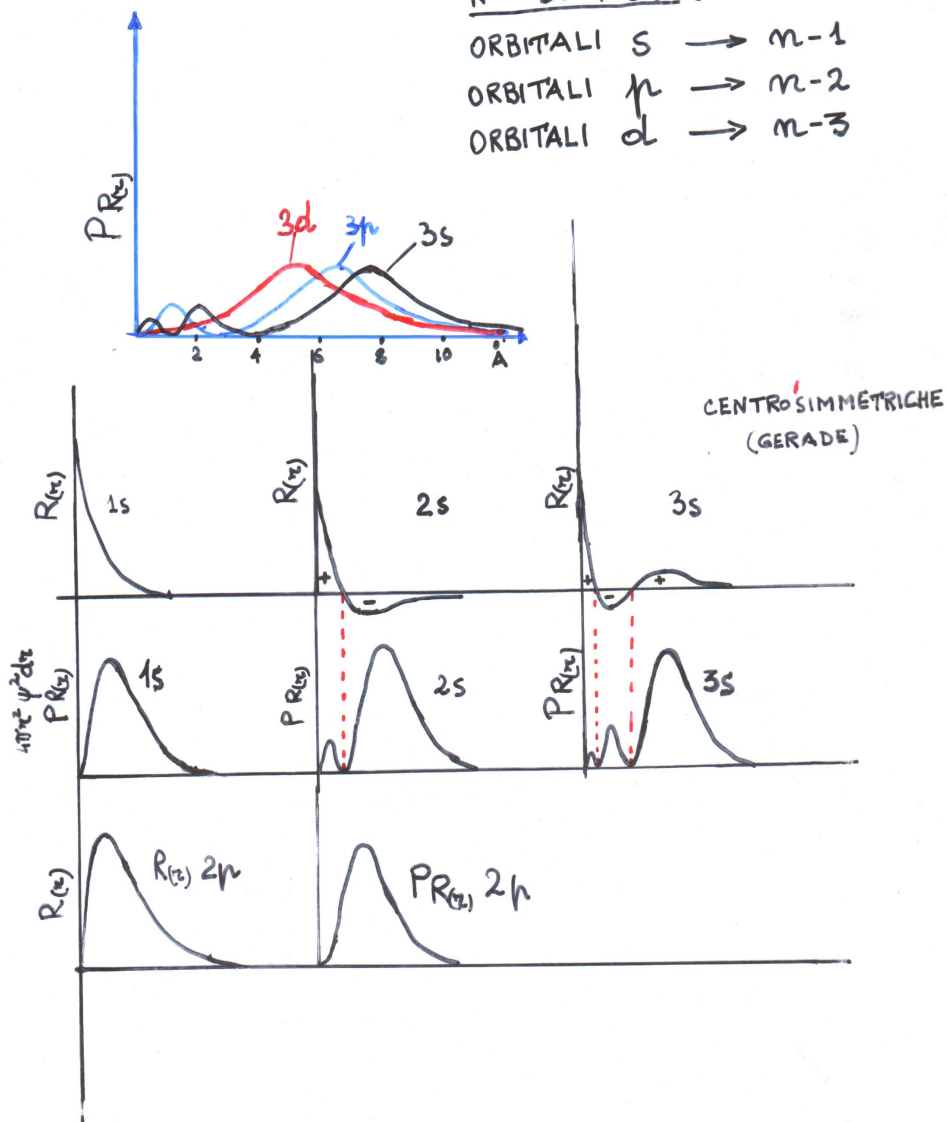 ORBITALI s → n-1
ORBITALI p → n-2
ORBITALI d → n-3
P R(r)
3d
3p
3s
2
4
6
8
10
Å
CENTROSIMMETRICHE
(GERADE)
R(r)
1s
R(r)
2s
R(r)
3s
+
-
+
-
+
4πr² ψ² dr
P R(r)
1s
P R(r)
2s
P R(r)
3s
R(r)
R(r) 2p
P R(r) 2p